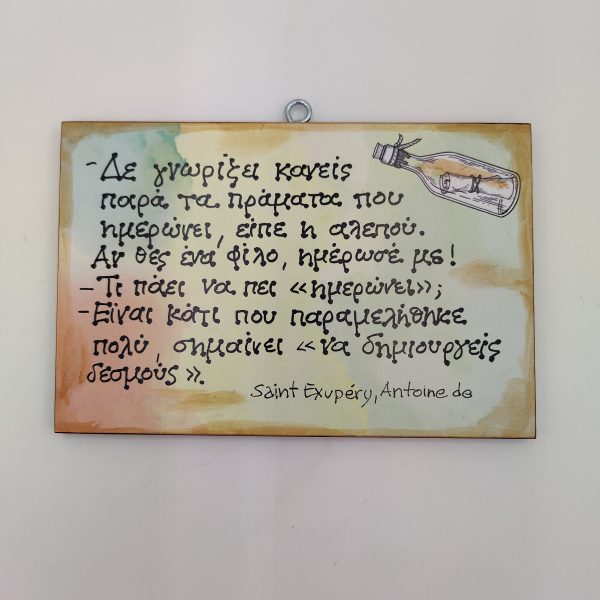 - Δε γνωρίζει κανείς
παρά τα πράματα που
ημερώνει, είπε η αλεπού.
Αν θες ένα φίλο, ημέρωσέ με!
- Τι πάει να πει «ημερώνει»;
- Είναι κάτι που παραμελήθηκε
πολύ, σημαίνει «να δημιουργείς
δεσμούς».
Saint Exupéry, Antoine de